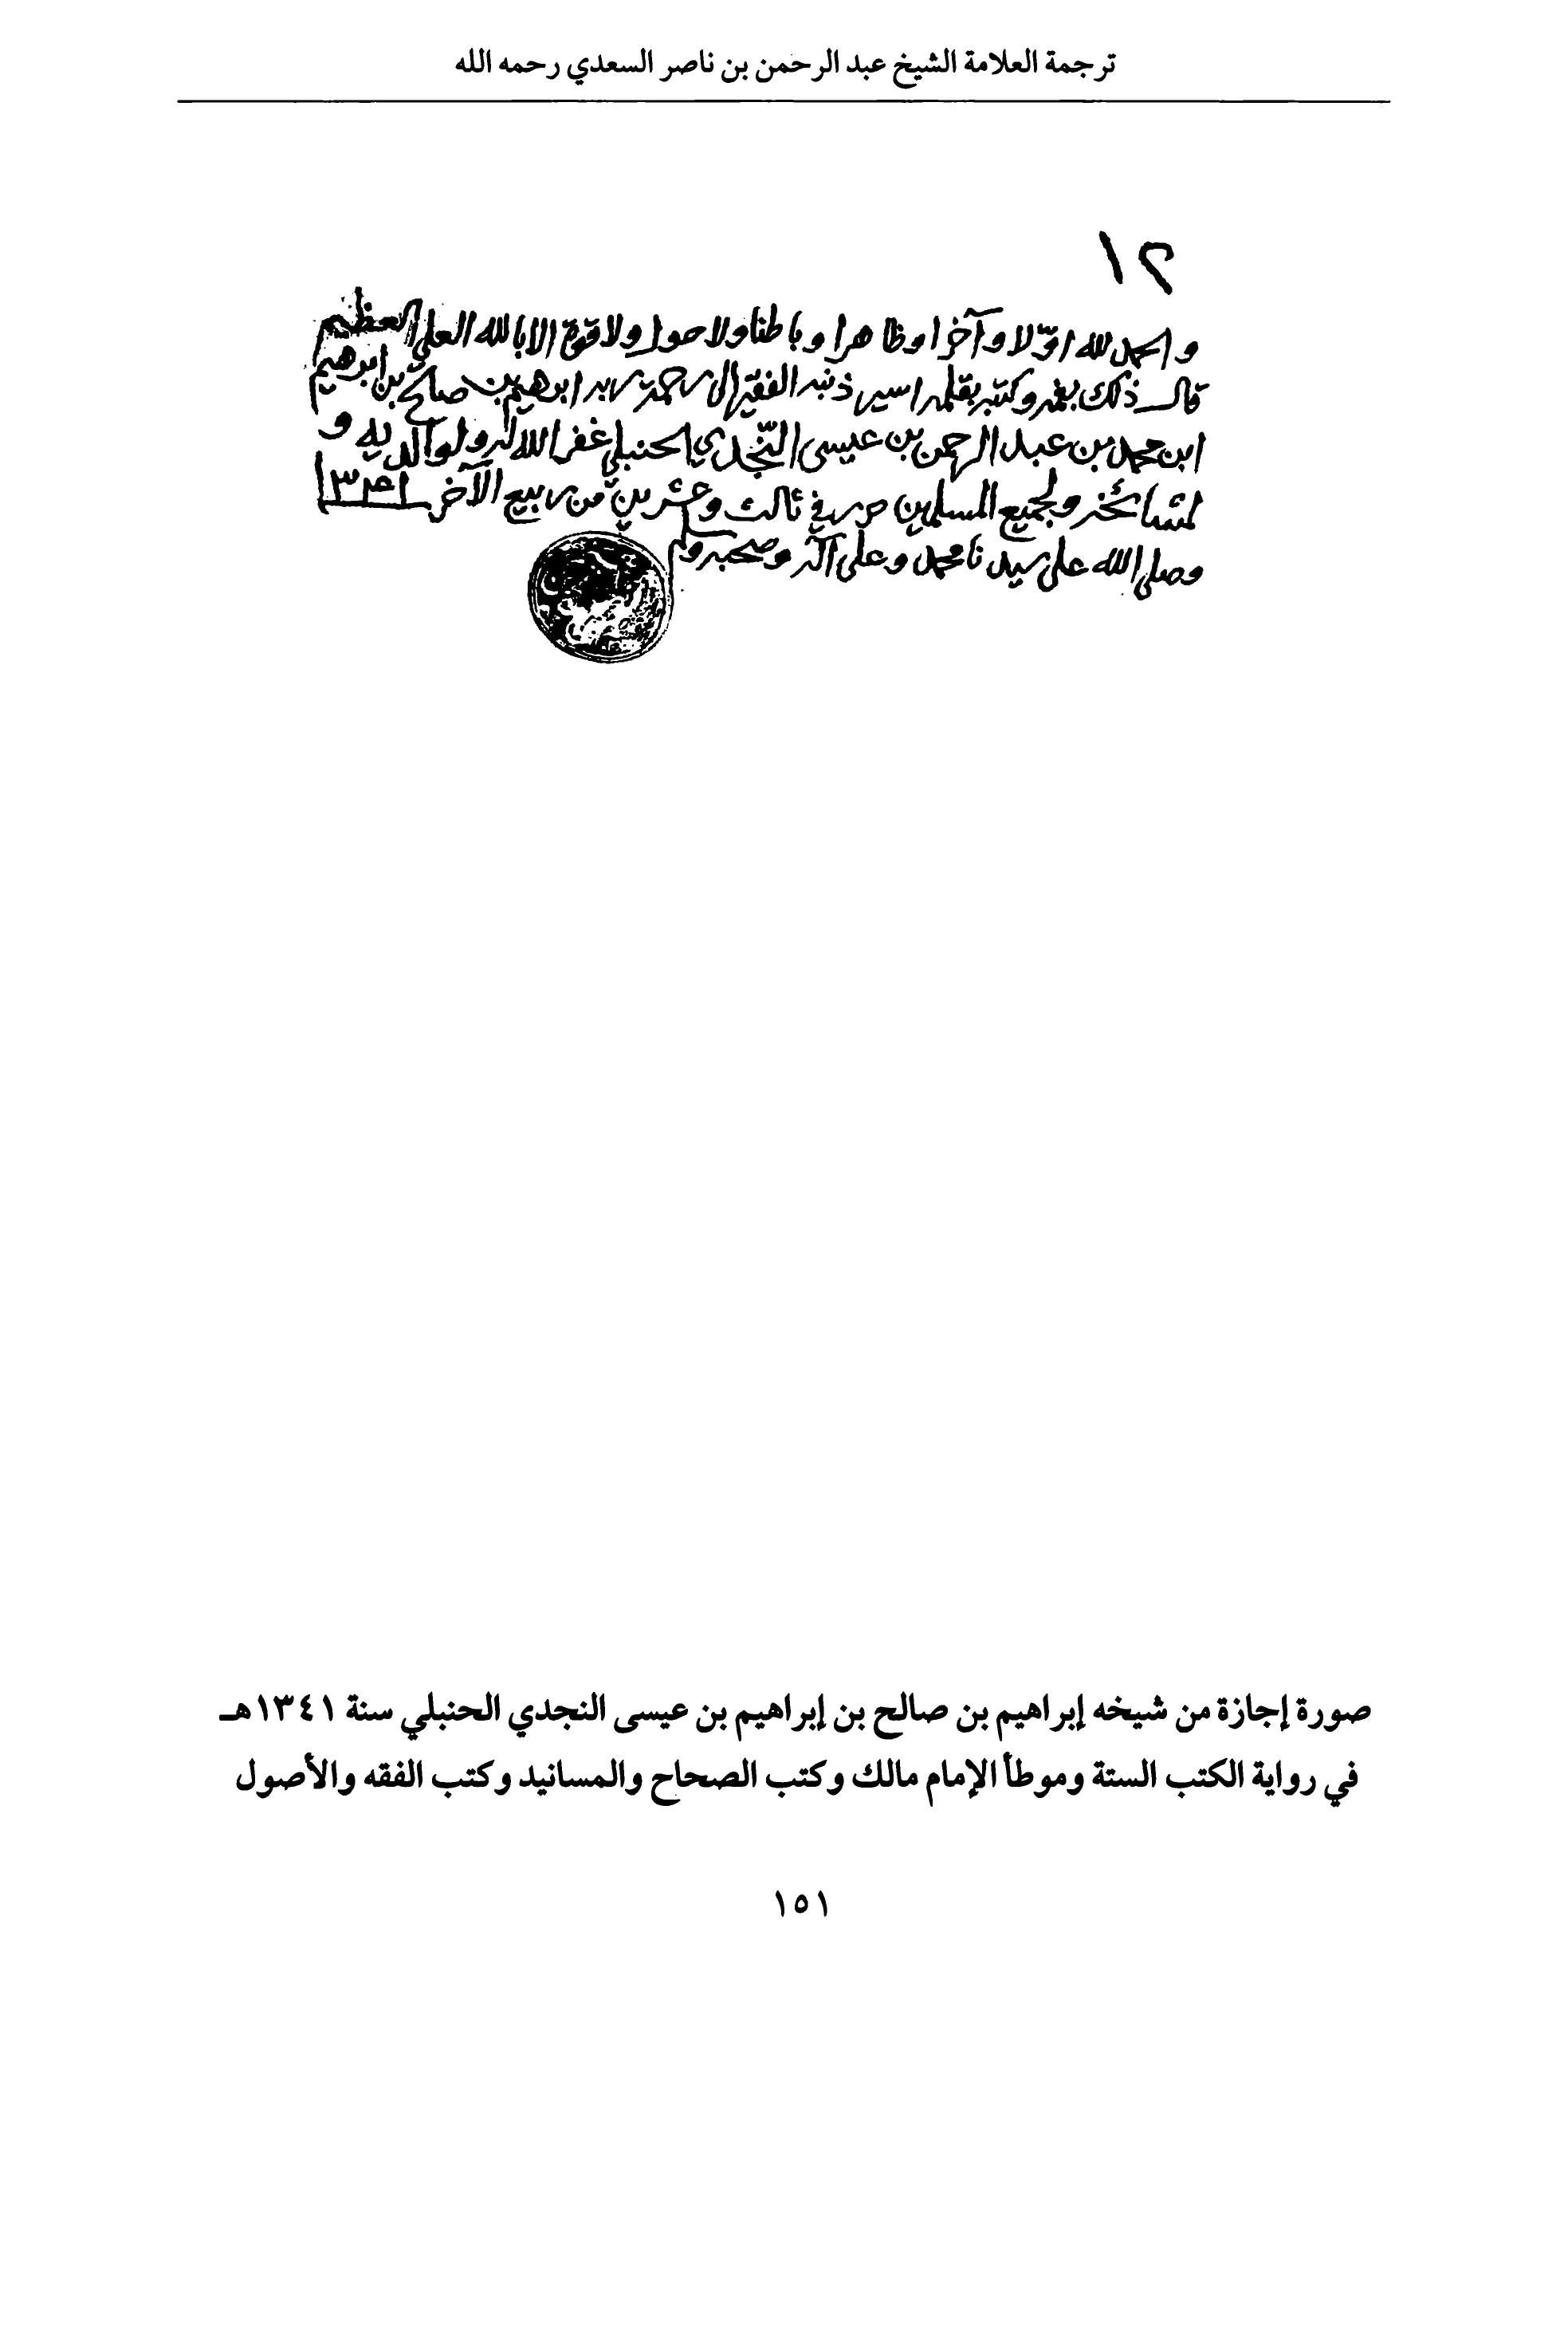 ترجمة العلامة الشيخ عبد الرحمن بن ناصر السعدي رحمه الله
١٢
والحمد لله اوّلا وآخرا وظاهرا وباطنا ولا حول ولا قوة الا بالله العلي العظيم
قال ذلك بفمه وكتبه بقلمه اسير ذنبه الفقير الى رحمة ربه ابرهيم بن صالح بن ابرهيم
ابن محمد بن عبد الرحمن بن عيسى النّجدي الحنبلي غفر الله له ولوالديه و
لمشائخه ولجميع المسلمين حرر في ثالث وعشرين من ربيع الآخر ١٣٤١
وصلى الله على سيدنا محمد وعلى آله وصحبه وسلم
صورة إجازة من شيخه إبراهيم بن صالح بن إبراهيم بن عيسى النجدي الحنبلي سنة ١٣٤١هـ
في رواية الكتب الستة وموطأ الإمام مالك وكتب الصحاح والمسانيد وكتب الفقه والأصول
١٥١